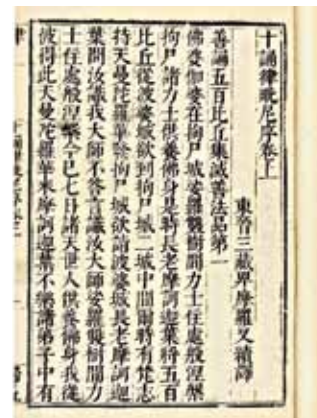 十誦律毗尼序卷上
東晉三藏卑摩羅叉續譯
善誦五百比丘集滅善法品第一
佛婆伽婆在拘尸城娑羅雙樹間力士住處般涅槃
拘尸諸力士供養佛身是時長老摩訶迦葉將五百
比丘從波婆城欲到拘尸城二城中間爾時有梵志
持天曼陀羅華從拘尸城欲詣波婆城長老摩訶迦
葉問汝識我大師不答言識汝大師娑羅雙樹間力
士住處般涅槃今已七日諸天世人供養佛身我從
彼得此天曼陀羅華來摩訶迦葉不樂諸弟子中有